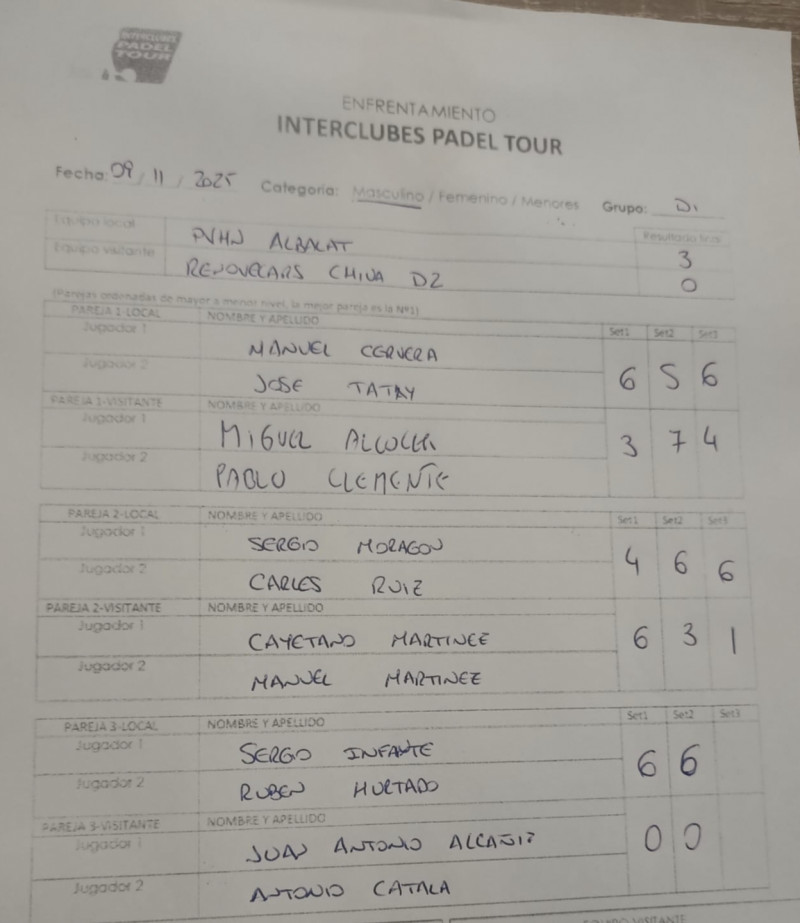 INTERCLUBES
PADEL
TOUR
ENFRENTAMIENTO
INTERCLUBES PADEL TOUR
Fecha: 09 / 11 / 2025 Categoría: Masculino / Femenino / Menores Grupo: D1
Equipo local PVHN ALBALAT Resultado final 3
Equipo visitante RENOVECARS CHIVA D2 0
(Parejas ordenadas de mayor a menor nivel, la mejor pareja es la Nº1)
PAREJA 1-LOCAL NOMBRE Y APELLIDO Set1 Set2 Set3
Jugador 1 MANUEL CERVERA
Jugador 2 JOSE TATAY 6 5 6
PAREJA 1-VISITANTE NOMBRE Y APELLIDO
Jugador 1 MIGUEL ALCOCER 3 7 4
Jugador 2 PABLO CLEMENTE
PAREJA 2-LOCAL NOMBRE Y APELLIDO Set1 Set2 Set3
Jugador 1 SERGIO MORAGON
Jugador 2 CARLES RUIZ 4 6 6
PAREJA 2-VISITANTE NOMBRE Y APELLIDO
Jugador 1 CAYETANO MARTINEZ 6 3 1
Jugador 2 MANUEL MARTINEZ
PAREJA 3-LOCAL NOMBRE Y APELLIDO Set1 Set2 Set3
Jugador 1 SERGIO INFANTE
Jugador 2 RUBEN HURTADO 6 6
PAREJA 3-VISITANTE NOMBRE Y APELLIDO
Jugador 1 JUAN ANTONIO ALCAÑIZ 0 0
Jugador 2 ANTONIO CATALA
VISITANTE